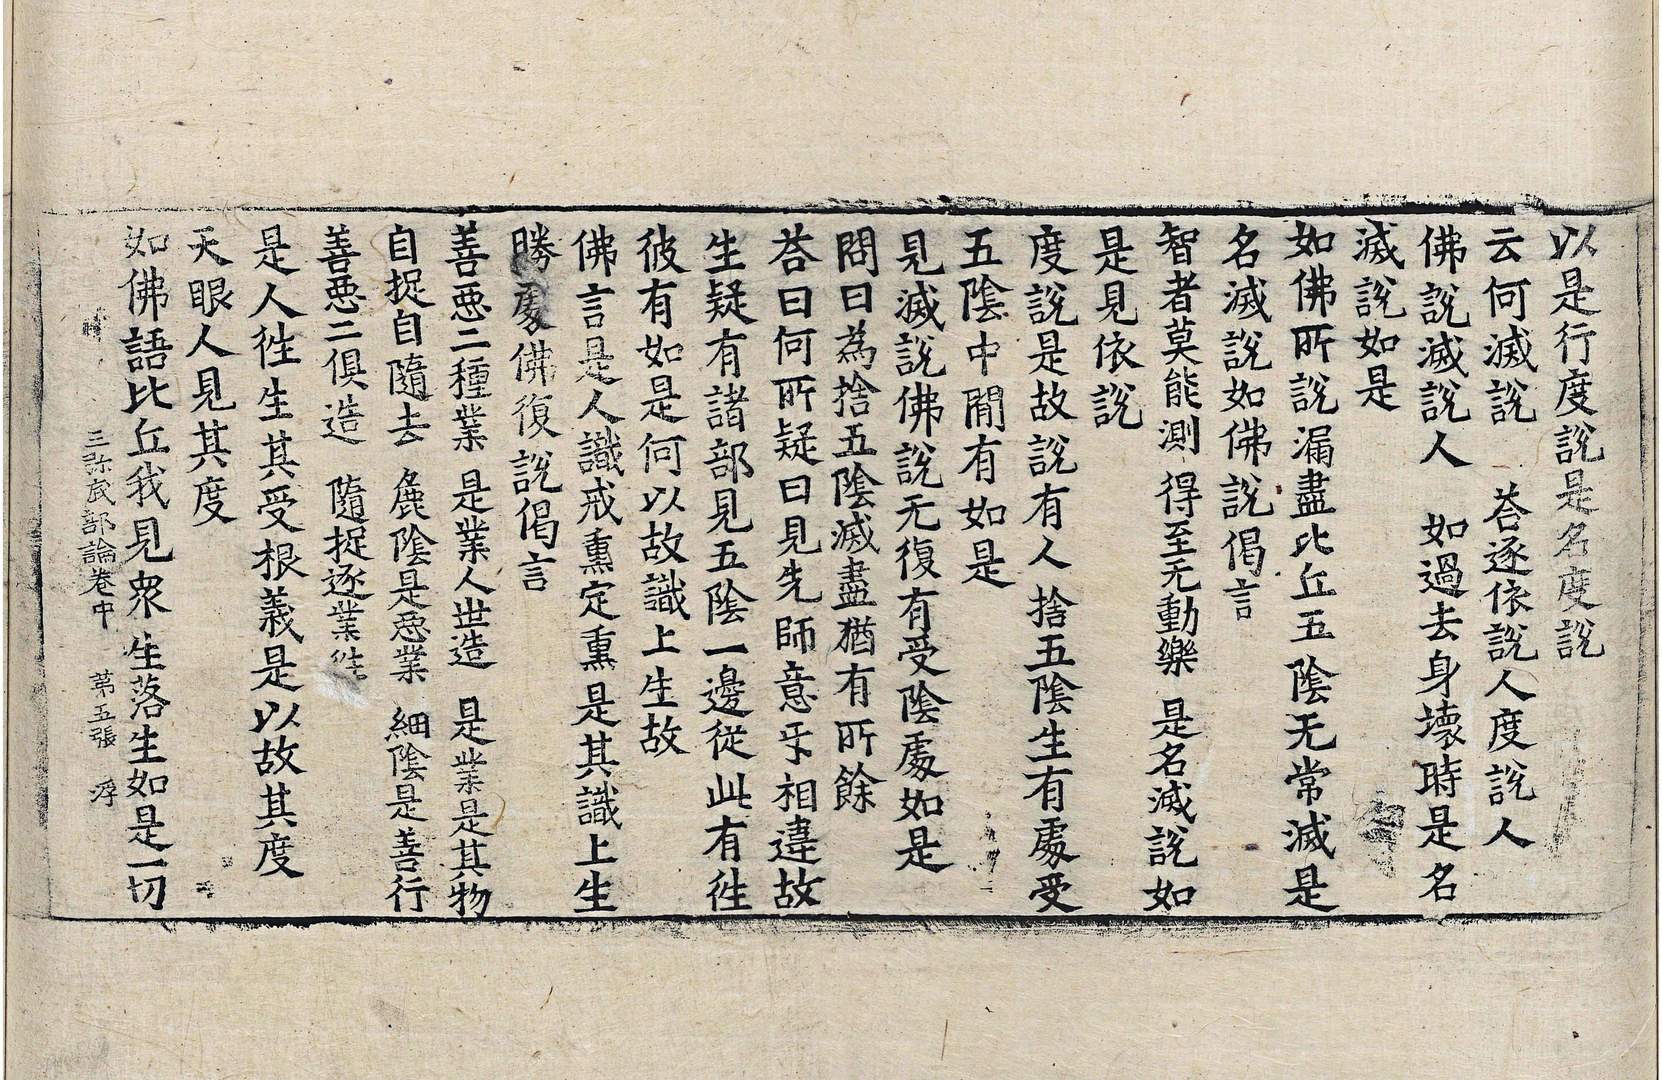 以是行度說是名度說
云何滅說　荅逐依說人度說人
佛說滅說人　如過去身壞時是名
滅說如是
如佛所說漏盡比丘五陰无常滅是
名滅說如佛說偈言
智者莫能測　得至无動樂　是名滅說如
是見依說
度說是故說有人捨五陰生有處受
五陰中閒有如是
見滅說佛說无復有受陰處如是
問曰為捨五陰滅盡猶有所餘
荅曰何所疑曰見先師意乎相違故
生疑有諸部見五陰一邊從此有徃
彼有如是何以故識上生故
佛言是人識戒熏定熏是其識上生
勝處佛復說偈言
善惡二種業　是業人世造　是業是其物
自捉自隨去　麁陰是惡業　細陰是善行
善惡二俱造　隨捉逐業徃
是人徃生其受根義是以故其度
天眼人見其度
如佛語比丘我見衆生落生如是一切
三弥底部論卷中　第五張　浮